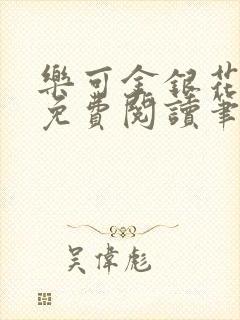 樂可金銀花
免費閱讀筆
吳偉彪